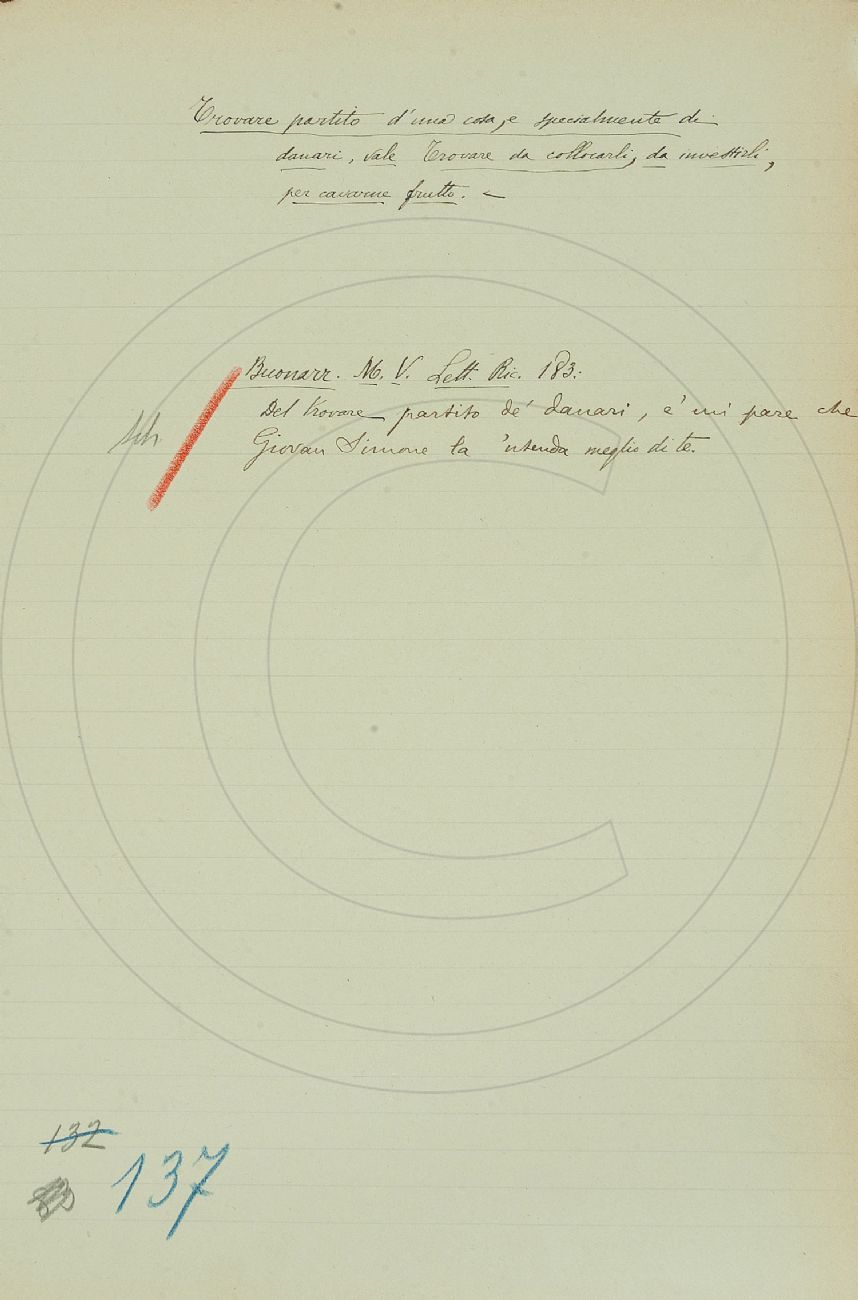 Trovare partito d'una cosa, e specialmente di
danari, vale Trovare da collocarli, da investirli,
per cavarne frutto. –
Buonarr. M. V. Lett. Ric. 183:
Del trovare partito de' danari, e' mi pare che
Giovan Simone la 'ntenda meglio di te.
132
137